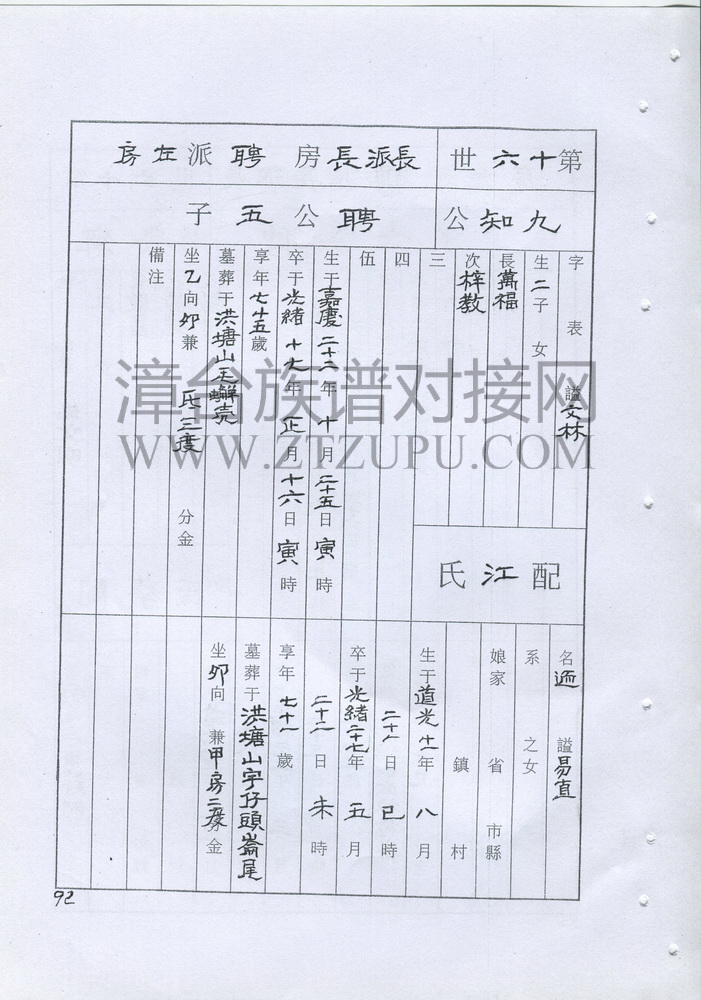 第十六世
長派長房 聘派左房
九知公
聘公五子
字 表 諡文林
生二子 女
長萬福
次梓教
三
四
伍
生于嘉慶二十二年十月二十五日寅時
卒于光緒十七年正月十六日寅時
享年七十五歲
墓葬于洪塘山
坐乙向卯兼 三度 分金
備注
配江氏
名 諡易直
系 之女
娘家 省 市縣
鎮 村
生于道光十一年八月
二十二日巳時
卒于光緒二十七年五月
二十二日未時
享年七十一歲
墓葬于洪塘山字仔頭崙尾
坐卯向 兼甲房二度分金
92
漳台族谱对接网
WWW.ZTZUPU.COM